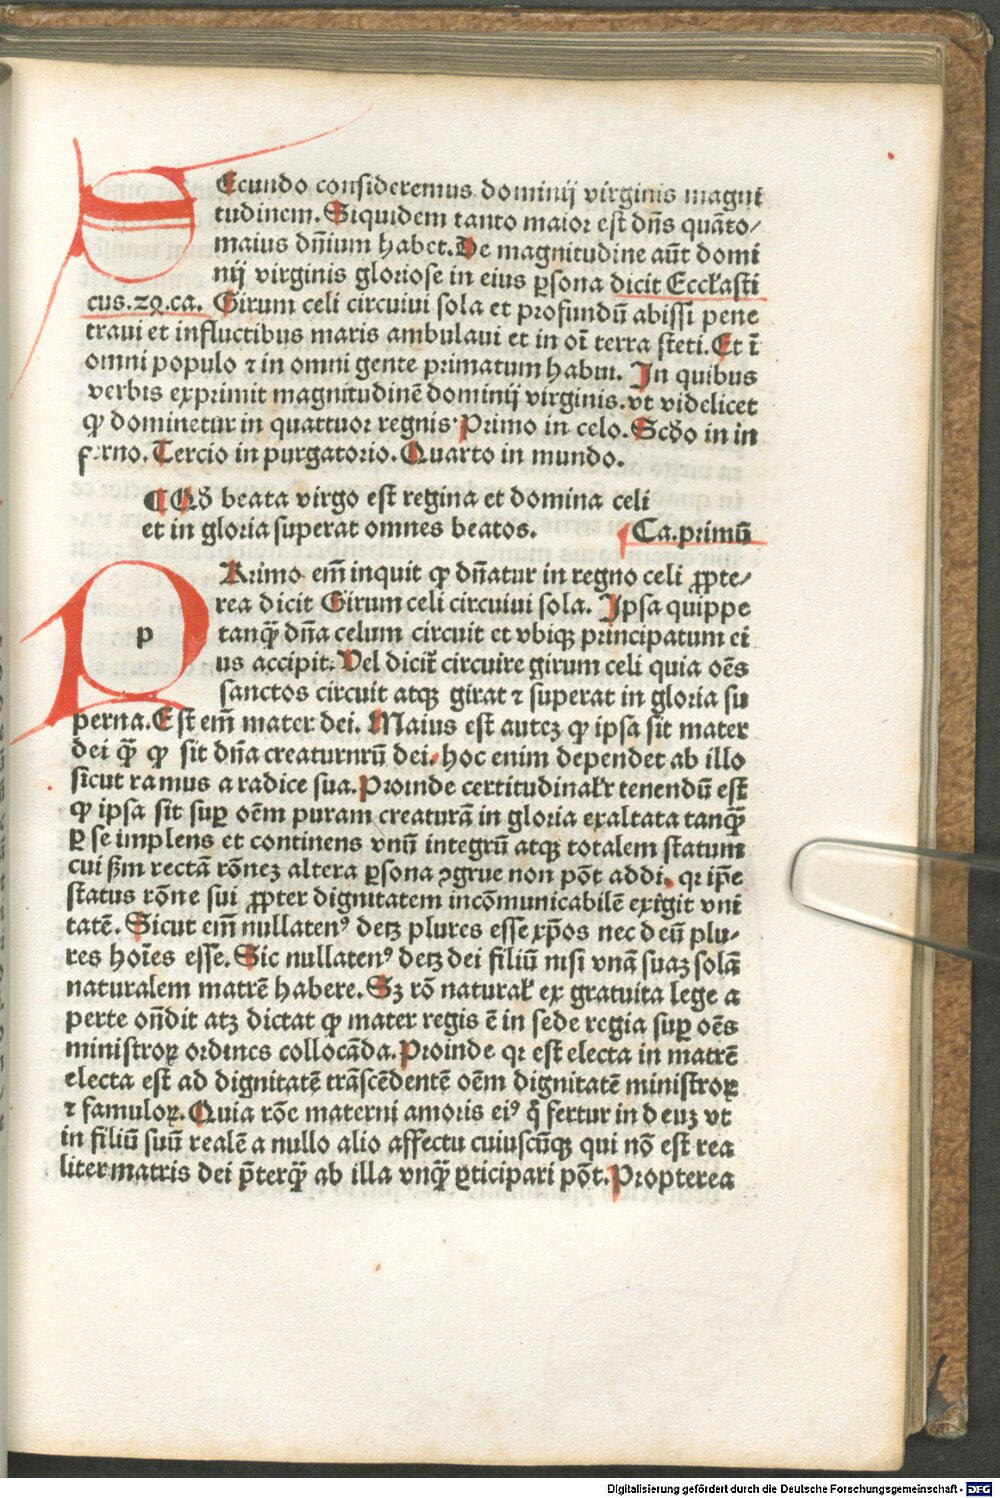 SEcundo consideremus dominij virginis magni
tudinem. Siquidem tanto maior est dñs quãto/
maius dñium habet. De magnitudine aũt domi
nij virginis gloriose in eius ꝑsona dicit Eccl'asti
cus.24.ca. Girum celi circuiui sola et profundũ abissi pene
traui et influctibus maris ambulaui et in oĩ terra steti. Et ĩ
omni populo ⁊ in omni gente primatum habui. In quibus
verbis exprimit magnitudinẽ dominij virginis. vt videlicet
ꝙ dominetur in quattuor regnis. Primo in celo. Scđo in in
ferno. Tercio in purgatorio. Quarto in mundo.
¶ Qđ beata virgo est regina et domina celi
et in gloria superat omnes beatos. Ca.primũ
p
PRimo em̃ inquit ꝙ dñatur in regno celi ꝓpte/
rea dicit Girum celi circuiui sola. Ipsa quippe
tanq̃ dña celum circuit et vbiqꝫ principatum ei
us accipit. Vel dicit̃ circuire girum celi quia oẽs
sanctos circuit atqꝫ girat ⁊ superat in gloria su
perna. Est em̃ mater dei. Maius est auteꝫ ꝙ ipsa sit mater
dei q̃ ꝙ sit dña creaturnrũ dei. hoc enim dependet ab illo
sicut ramus a radice sua. Proinde certitudinal'r tenendũ est
ꝙ ipsa sit suꝑ oẽm puram creaturã in gloria exaltata tanq̃
ꝑ se implens et continens vnũ integrũ atqꝫ totalem statum
cui ẜm rectã rõneꝫ altera ꝑsona ꝯgrue non põt addi. qr ip̃e
status rõne sui ꝓpter dignitatem incõmunicabilẽ exigit vni
tatẽ. Sicut em̃ nullatenꝰ detꝫ plures esse xp̃os nec deũ plu-
res hoĩes esse. Sic nullatenꝰ detꝫ dei filiũ nisi vnã suaꝫ solã
naturalem matrẽ habere. Sꝫ rõ natural' ex gratuita lege a
perte oñdit atꝫ dictat ꝙ mater regis ẽ in sede regia suꝑ oẽs
ministroꝝ ordines collocãda. Proinde qr est electa in matrẽ
electa est ad dignitatẽ trãscẽdentẽ oẽm dignitatẽ ministroꝝ
⁊ famuloꝝ. Quia rõe materni amoris eiꝰ q̃ fertur in deuꝫ vt
in filiũ suũ realẽ a nullo alio affectu cuiuscũqꝫ qui nõ est rea
liter matris dei p̃terq̃ ab illa vnq̃ ꝑticipari põt. Propterea
Digitalisierung gefördert durch die Deutsche Forschungsgemeinschaft - DFG